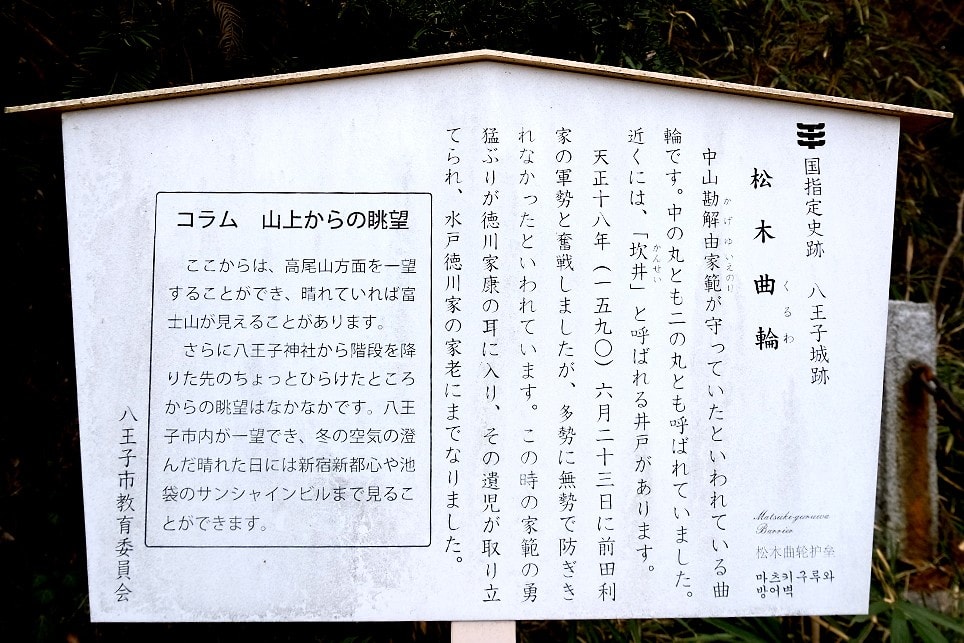 国指定史跡　八王子城跡
松木曲輪
くるわ
中山勘解由家範が守っていたといわれている曲
かげゆいえのり
輪です。中の丸とも二の丸とも呼ばれていました。
近くには、「坎井」と呼ばれる井戸があります。
かんせい
天正十八年（一五九〇）六月二十三日に前田利
家の軍勢と奮戦しましたが、多勢に無勢で防ぎき
れなかったといわれています。この時の家範の勇
猛ぶりが徳川家康の耳に入り、その遺児が取り立
てられ、水戸徳川家の家老にまでなりました。
コラム　山上からの眺望
ここからは、高尾山方面を一望
することができ、晴れていれば富
士山が見えることがあります。
さらに八王子神社から階段を降
りた先のちょっとひらけたところ
からの眺望はなかなかです。八王
子市内が一望でき、冬の空気の澄
んだ晴れた日には新宿新都心や池
袋のサンシャインビルまで見るこ
とができます。
八王子市教育委員会
Matsuki-guruwa
Barrier
松木曲轮护垒
마츠키 구루와
방어벽